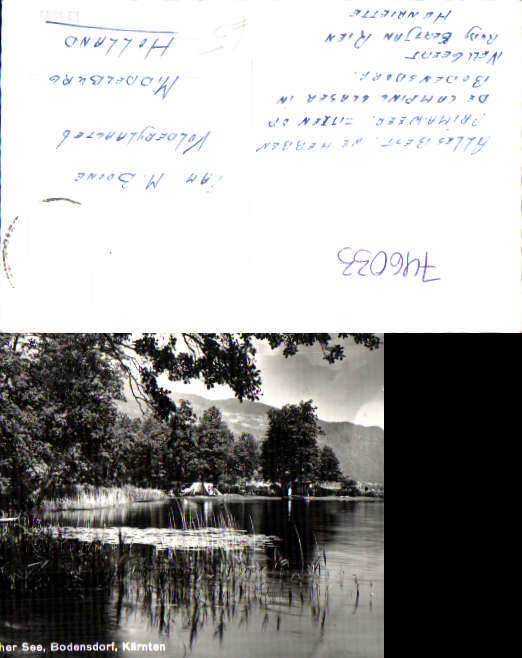 Alles best, we hebben
prima weer. Zitten op
de camping Glaser in
Bodensdorf.
Nell Geert
Rudy Bertjan Rien
Henriette
Fam M. Boone
Middelburg
Holland
746033
her See, Bodensdorf, Kärnten